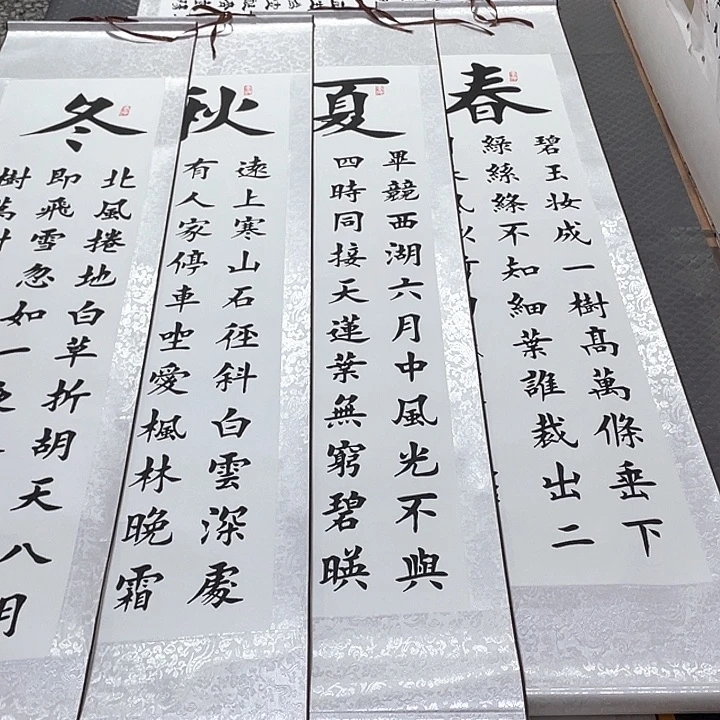 春
碧玉妆成一樹高萬條垂下
綠絲絛不知細葉誰裁出二
夏
畢競西湖六月中風光不與
四時同接天蓮葉無窮碧暎
秋
遠上寒山石徑斜白雲深處
有人家停車坐愛楓林晚霜
冬
北風捲地白草折胡天八月
即飛雪忽如一
樹萬